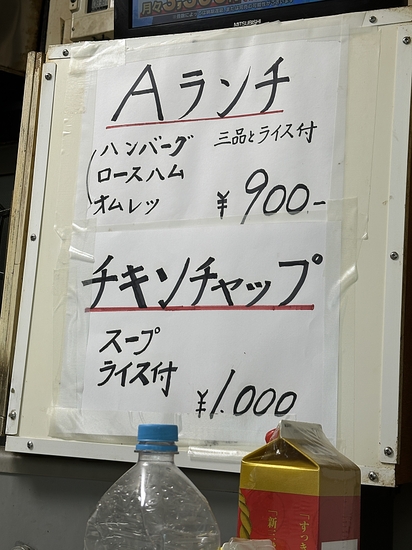 MITSUBISHI
Aランチ
ハンバーグ 三品とライス付
ロースハム
オムレツ ¥900-
チキンチャップ
スープ
ライス付
¥1.000